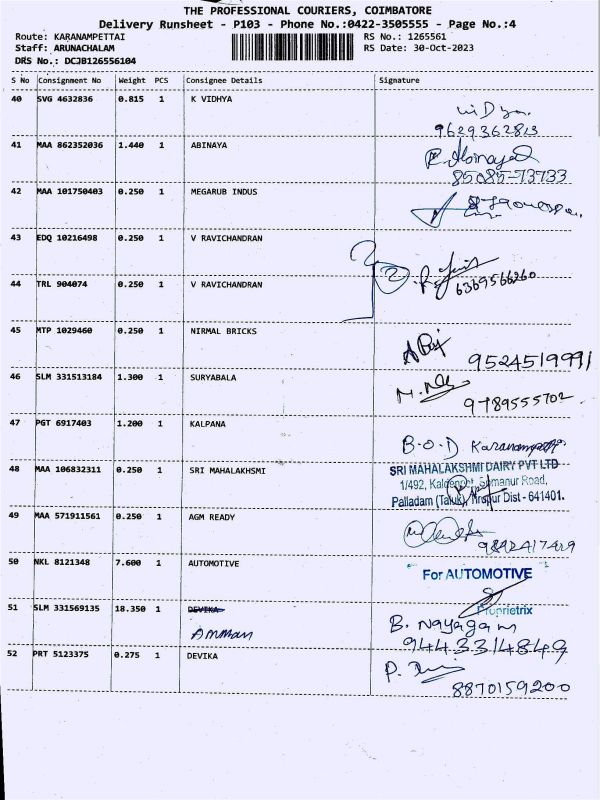 THE PROFESSIONAL COURIERS, COIMBATORE
Delivery Runsheet - P103 - Phone No.:0422-3505555 - Page No.:4
Route: KARANAMPETTAI RS No.: 1265561
Staff: ARUNACHALAM RS Date: 30-Oct-2023
DRS No.: DCJB126556104
S No Consignment No Weight PCS Consignee Details Signature
40 SVG 4632836 0.815 1 K VIDHYA
9629362813
41 MAA 862352036 1.440 1 ABINAYA R. Abinaya
85085-73733
42 MAA 101750403 0.250 1 MEGARUB INDUS
43 EDQ 10216498 0.250 1 V RAVICHANDRAN
44 TRL 904074 0.250 1 V RAVICHANDRAN 6369566260
45 MTP 1029460 0.250 1 NIRMAL BRICKS
9524519991
46 SLM 331513184 1.300 1 SURYABALA
9789555702
47 PGT 6917403 1.200 1 KALPANA
B.O.D Karanampettai
48 MAA 106832311 0.250 1 SRI MAHALAKHSMI SRI MAHALAKSHMI DAIRY PVT LTD
1/492, Kalgenpirt, Somanur Road,
Palladam (Taluk), Tirupur Dist - 641401.
49 MAA 571911561 0.250 1 AGM READY
9892417429
50 NKL 8121348 7.600 1 AUTOMOTIVE For AUTOMOTIVE
Proprietrix
51 SLM 331569135 18.350 1 DEVIKA
Amman B. Nayagam
9443314849
52 PRT 5123375 0.275 1 DEVIKA
8870159200